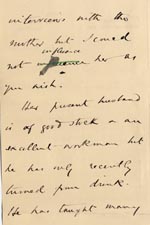 interviews with the
mother but I could
influence
not her as
you wish.
Her present husband
is of good stock & an
excellent workman but
he has only recently
turned from drink.
He has taught many